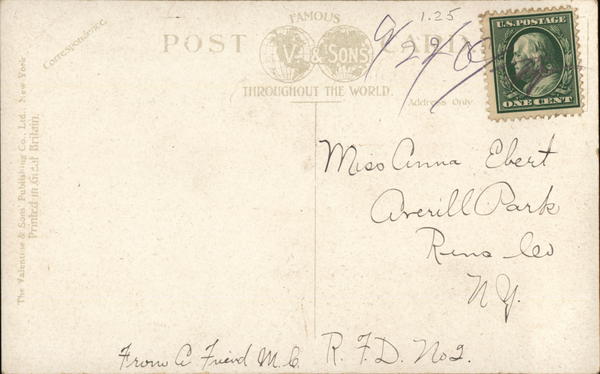 FAMOUS
1.25
Correspondence.
POST CARD
V. & SONS
THROUGHOUT THE WORLD.
Address Only
U.S. POSTAGE
ONE CENT
The Valentine & Sons' Publishing Co., Ltd., New York
Printed in Great Britain.
Miss Anna Ebert
Averill Park
Rens-Co
N.Y.
R. F. D. No 2.
From A Friend M. C.